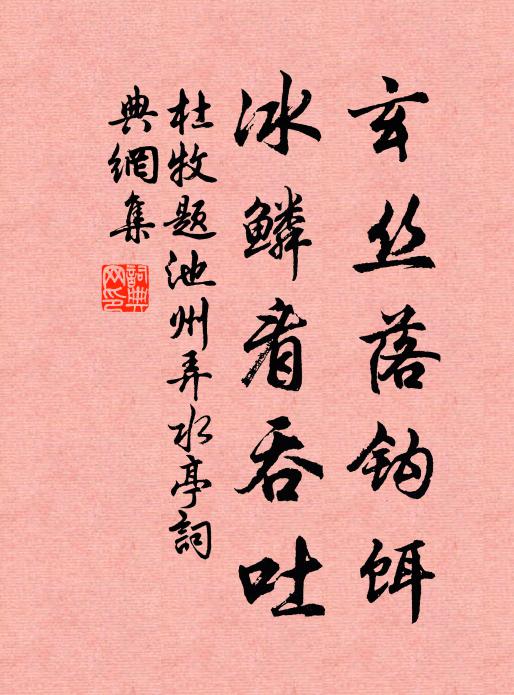 玄丝落钩饵
冰鳞看吞吐
杜牧题池州弄水亭詞
典網集
詞典网印